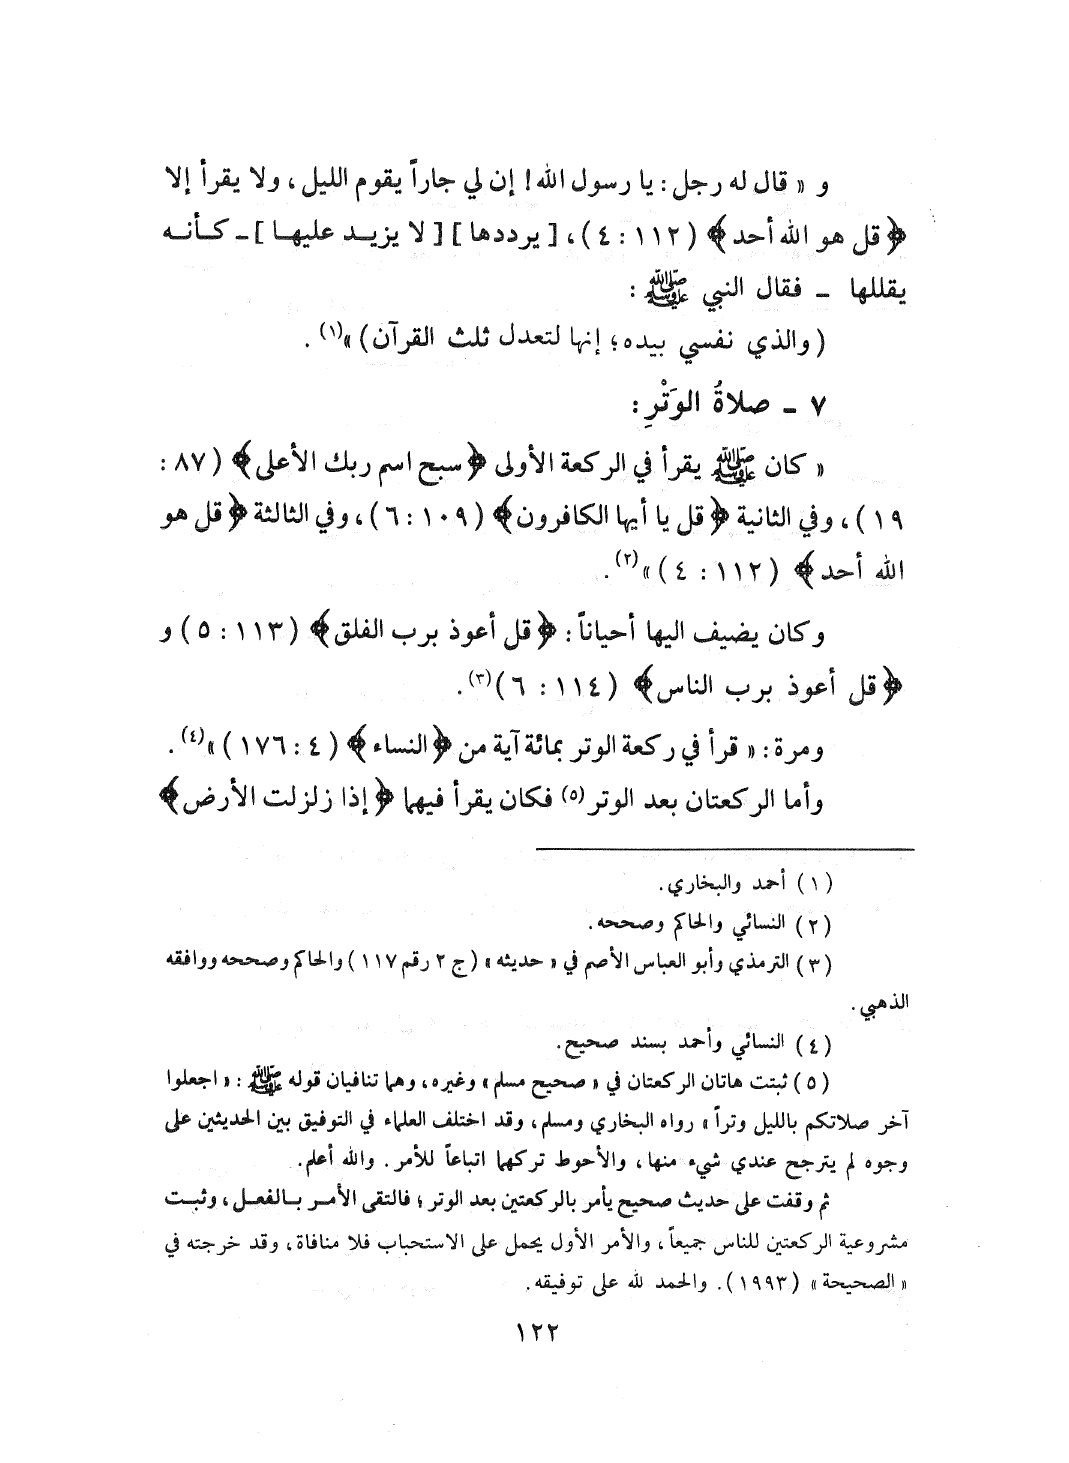 و « قال له رجل : يا رسول الله ! إن لي جاراً يقوم الليل ، ولا يقرأ إلا
﴿ قل هو الله أحد ﴾ ( ١١٢ : ٤ ) ، [ يرددها ] [ لا يزيد عليها ] ـ كأنه
يقللها ـ فقال النبي ﷺ :
( والذي نفسي بيده ؛ إنها لتعدل ثلث القرآن ) »(١) .
٧ ـ صلاةُ الوَتْرِ :
« كان ﷺ يقرأ في الركعة الأولى ﴿ سبح اسم ربك الأعلى ﴾ ( ٨٧ :
١٩ ) ، وفي الثانية ﴿ قل يا أيها الكافرون ﴾ ( ١٠٩ : ٦ ) ، وفي الثالثة ﴿ قل هو
الله أحد ﴾ ( ١١٢ : ٤ ) »(٢) .
وكان يضيف اليها أحياناً : ﴿ قل أعوذ برب الفلق ﴾ ( ١١٣ : ٥ ) و
﴿ قل أعوذ برب الناس ﴾ ( ١١٤ : ٦ )(٣) .
ومرة : « قرأ في ركعة الوتر بمائة آية من ﴿ النساء ﴾ ( ٤ : ١٧٦ ) »(٤) .
وأما الركعتان بعد الوتر (٥) فكان يقرأ فيهما ﴿ إذا زلزلت الأرض ﴾
( ١ ) أحمد والبخاري .
( ٢ ) النسائي والحاكم وصححه .
( ٣ ) الترمذي وأبو العباس الأصم في « حديثه » ( ج ٢ رقم ١١٧ ) والحاكم وصححه ووافقه
الذهبي .
( ٤ ) النسائي وأحمد بسند صحيح .
( ٥ ) ثبتت هاتان الركعتان في « صحيح مسلم » وغيره ، وهما تنافيان قوله ﷺ : « اجعلوا
آخر صلاتكم بالليل وتراً » رواه البخاري ومسلم ، وقد اختلف العلماء في التوفيق بين الحديثين على
وجوه لم يترجح عندي شيء منها ، والأحوط تركهما اتباعاً للأمر . والله أعلم .
ثم وقفت على حديث صحيح يأمر بالركعتين بعد الوتر ؛ فالتقى الأمر بالفعل ، وثبت
مشروعية الركعتين للناس جميعاً ، والأمر الأول يحمل على الاستحباب فلا منافاة ، وقد خرجته في
« الصحيحة » ( ١٩٩٣ ) . والحمد لله على توفيقه .
١٢٢